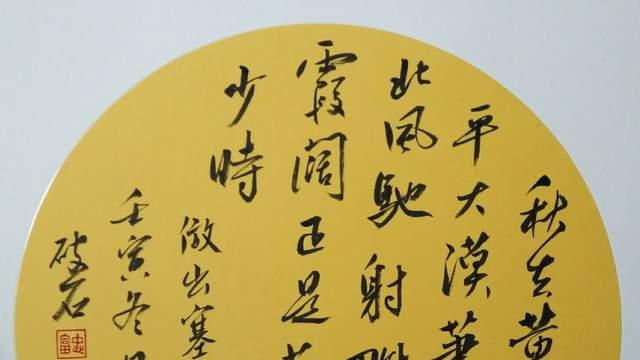 秋去黄
平大漠
北风馳射
霞阔正是
少時
倣出塞
壬寅冬
破石